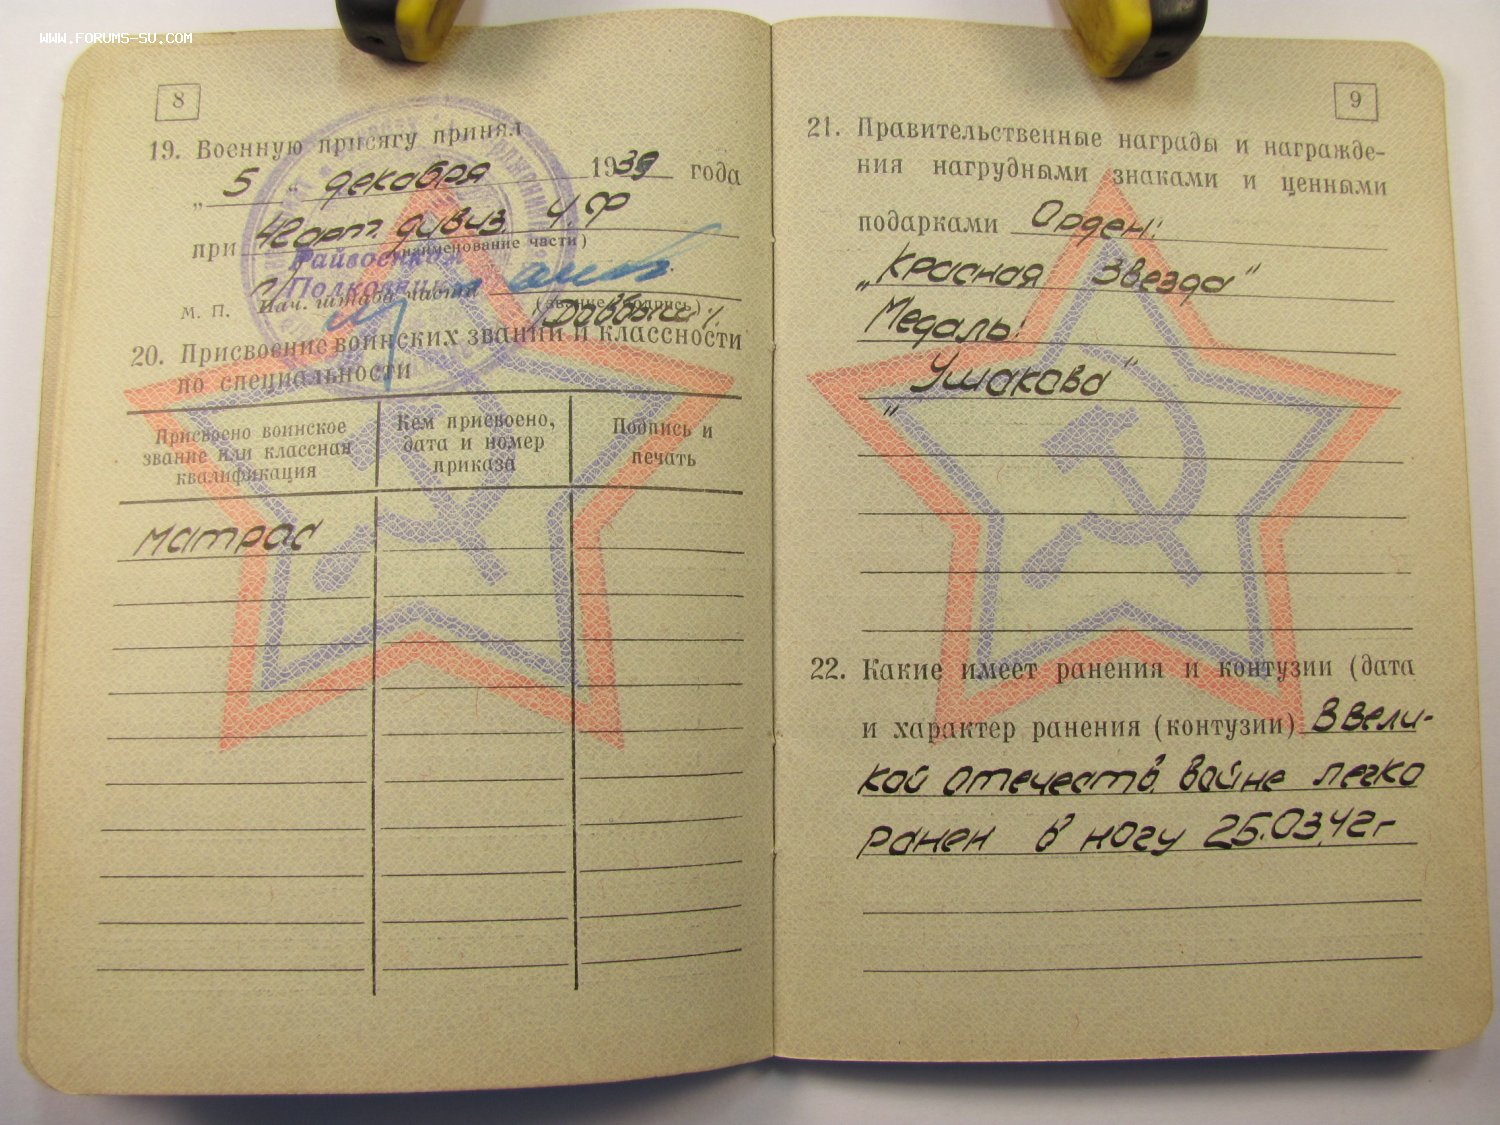 WWW.FORUMS-SU.COM
8
19. Военную присягу принял
„ 5 " декабря 1939 года
при 42 арт. дивиз. Ч.Ф
(наименование части)
Райвоенком
Полковник
М. П. Нач. штаба части
(звание, подпись)
20. Присвоение воинских званий и классности
по специальности
Присвоено воинское звание или классная квалификация
Кем присвоено, дата и номер приказа
Подпись и печать
матрас
9
21. Правительственные награды и награжде-
ния нагрудными знаками и ценными
подарками Орден:
„Красная Звезда"
Медаль:
„Ушакова"
22. Какие имеет ранения и контузии (дата
и характер ранения (контузии) В Вели-
кой отечеств. войне легко
ранен в ногу 25.03.42г